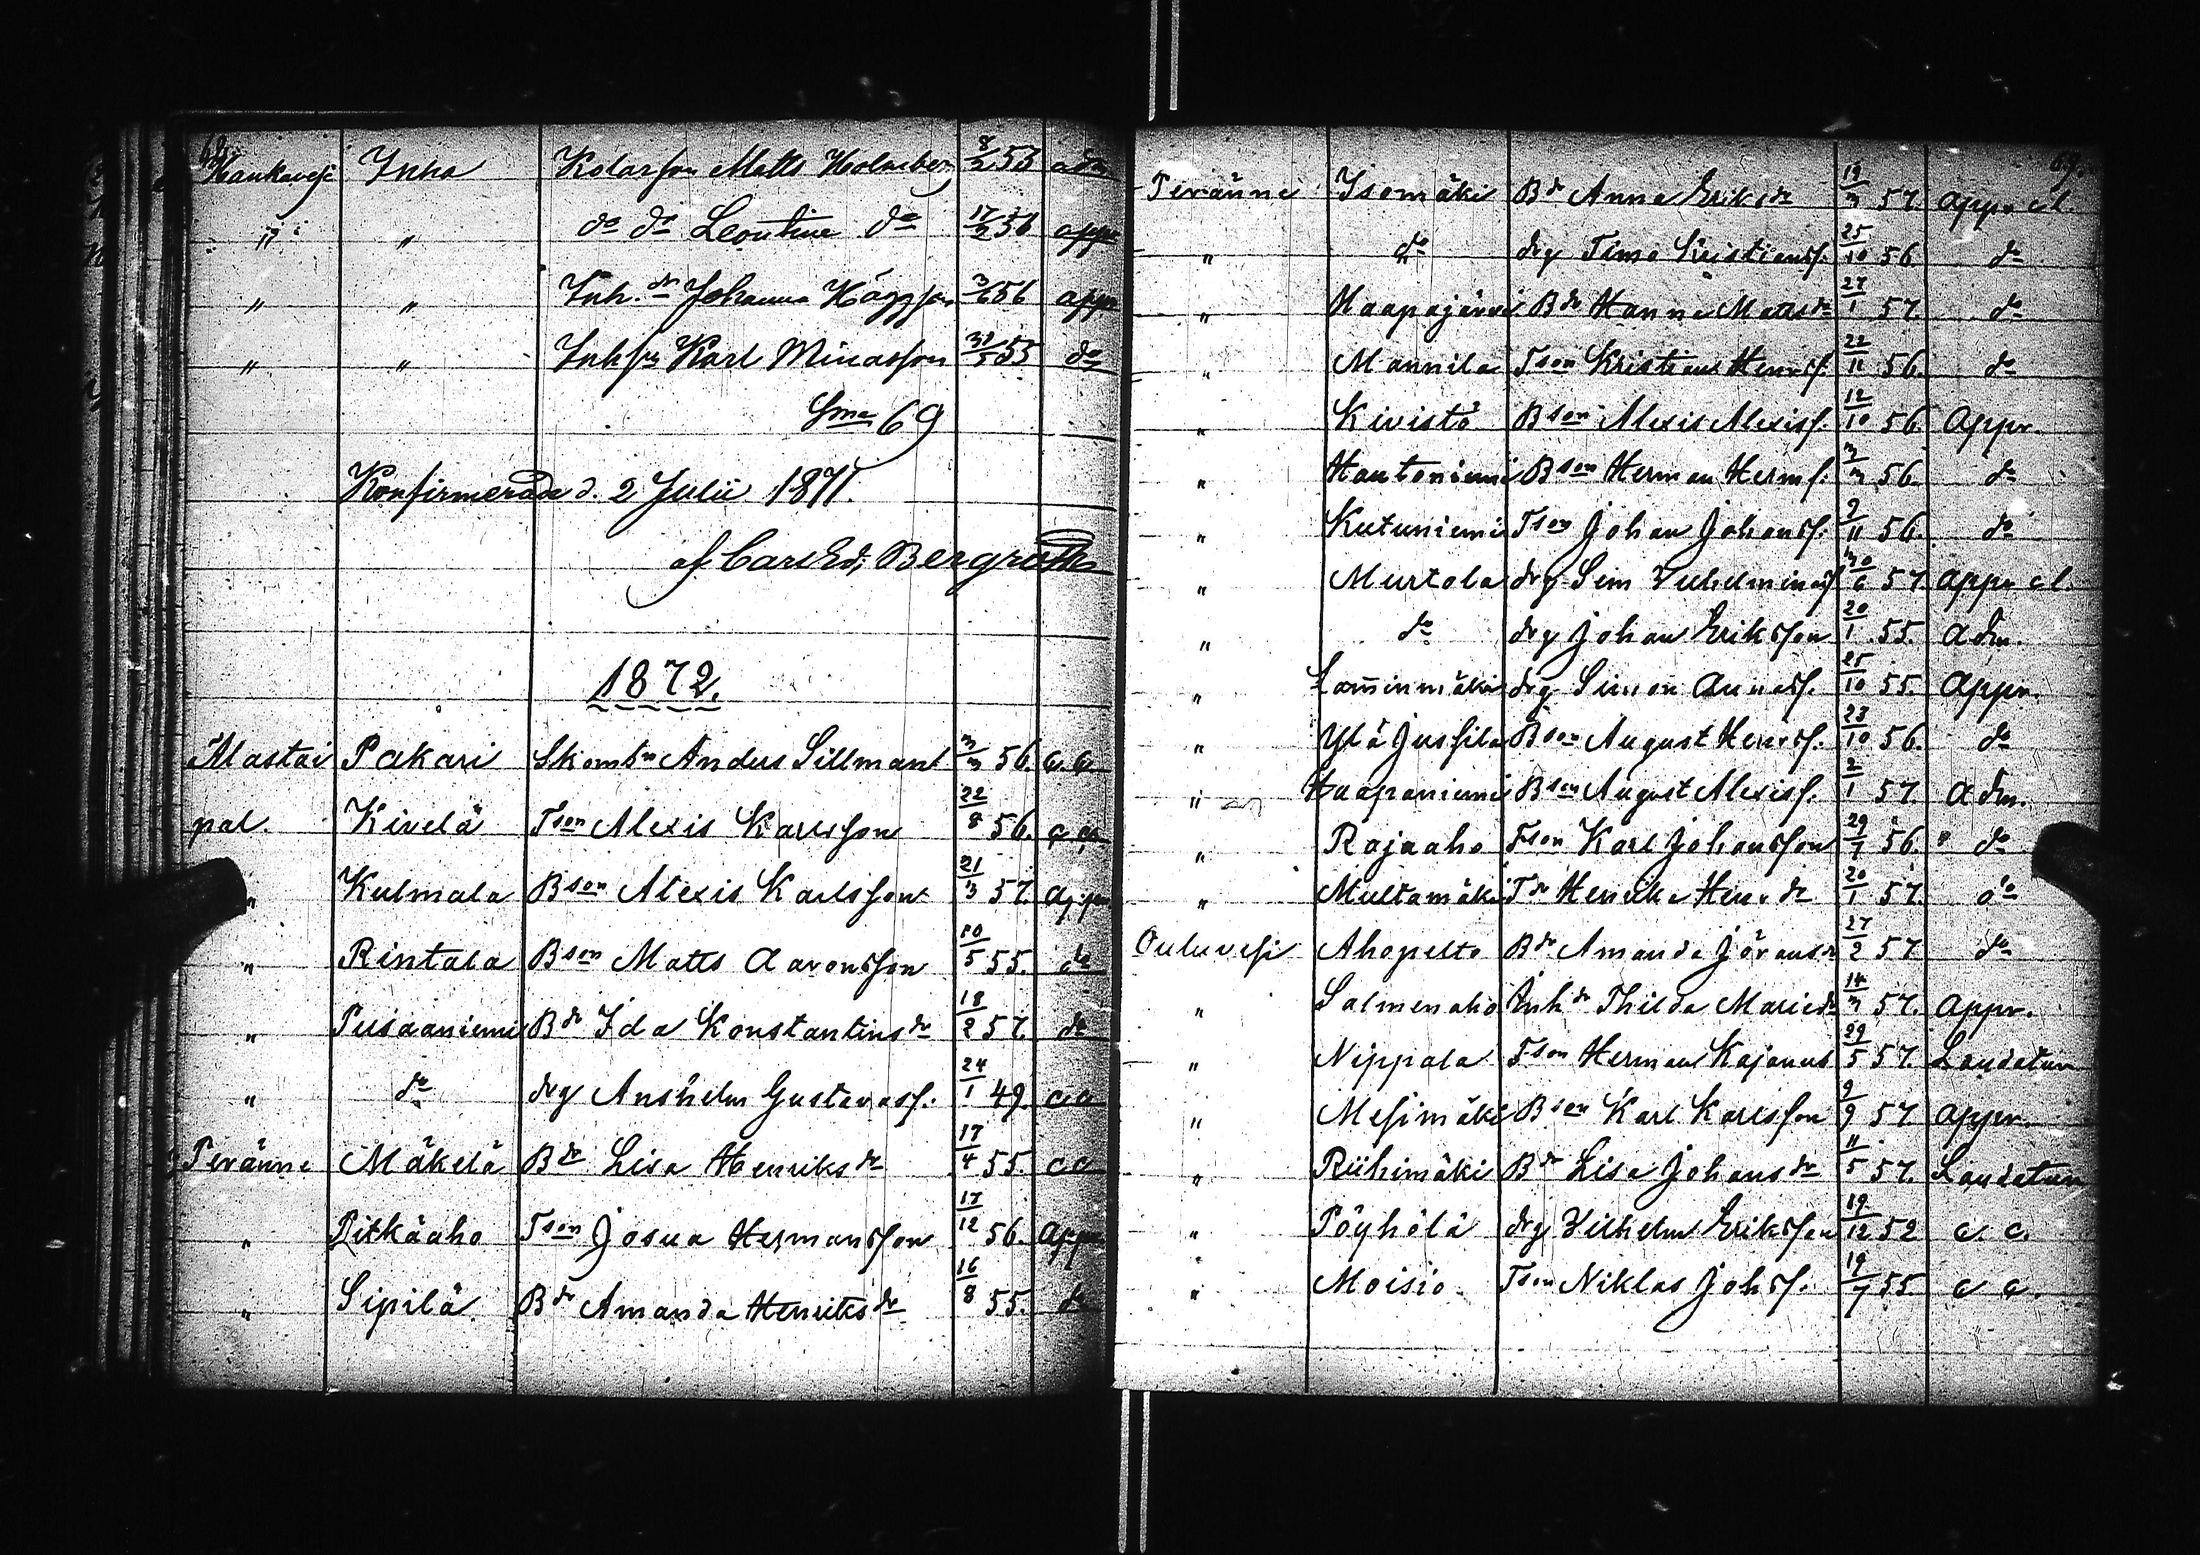 68.
Hankavesi Inha Kolarson Matts Holmberg 8/2 56 adm
" " do do Leontine do 17/2 56 appr
" " Inh. dr Johanna Häggson 3/6 56 appr
" " Inhson Karl Minasson 31/5 55 do
Sma 69
Konfirmerade d. 2 Julii 1871.
af Carl Ed. Bergroth
1872.
Alastai Pakari Skomson Anders Sillman 3/3 56. c.c
pal. Kivelä Tson Alexis Karlsson 22/8 56. c c
" Kulmala Bson Alexis Karlsson 21/3 57. Appr
" Rintala Bson Matts Aaronsson 10/5 55. do
" Pusaaniemi Bdr Ida Konstantinsdr 18/2 57. do
" do drg Anshelm Gustavasf. 24/1 49. cc
Peränne Mäkelä Bdr Lisa Henriksdr 17/4 55. cc
" Pitkäaho Tson Josua Hermansson 17/12 56. Appr
" Sipilä Bdr Amanda Henriksdr 16/8 55. do
69.
Peränne Isomäki Bdr Anna Eriksdr 19/3 57. Appr cl.
" do drg Timo Kristiansf. 25/10 56 do
" Haapajärvi Bdr Hanna Mattsdr 27/1 57. do
" Mannila Tson Kristian Henrsf. 22/11 56. do
" Kivistö Bson Alexis Alexisf. 12/10 56. Appr.
" Hautoniemi Bson Herman Hermf. 3/3 56. do
" Kutuniemi Tson Johan Johansf. 9/11 56. do
" Murtola drg Sim Vilhelminasf 30/6 57. Appr cl.
" do drg Johan Eriksson 20/1 55. Adm.
" Lamminmäki drg Simon Annasf. 25/10 55. Appr.
" Ylä Jussila Bson August Henrsf. 23/10 56. do
" Haapaniemi Bson August Alexisf. 2/1 57. Adm.
" Rajaaho Tson Karl Johansson 29/7 56. " do
" Multamäki Tdr Henrika Henrdr 20/1 57. do
Ouluvesi Ahopelto Bdr Amanda Jöransdr 27/2 57. do
" Salmenaho Inhdr Thilda Mariedr 14/3 57. Appr.
" Nippala Tson Herman Kajanus 29/5 57. Laudatur
" Mesimäki Bson Karl Karlsson 9/9 57. Appr.
" Riihimäki Bdr Lisa Johansdr 11/5 57. Laudatur
" Pöyhölä drg Vilhelm Eriksson 19/12 52 c. c.
" Moisio Tson Niklas Johsf. 19/7 55. c c.